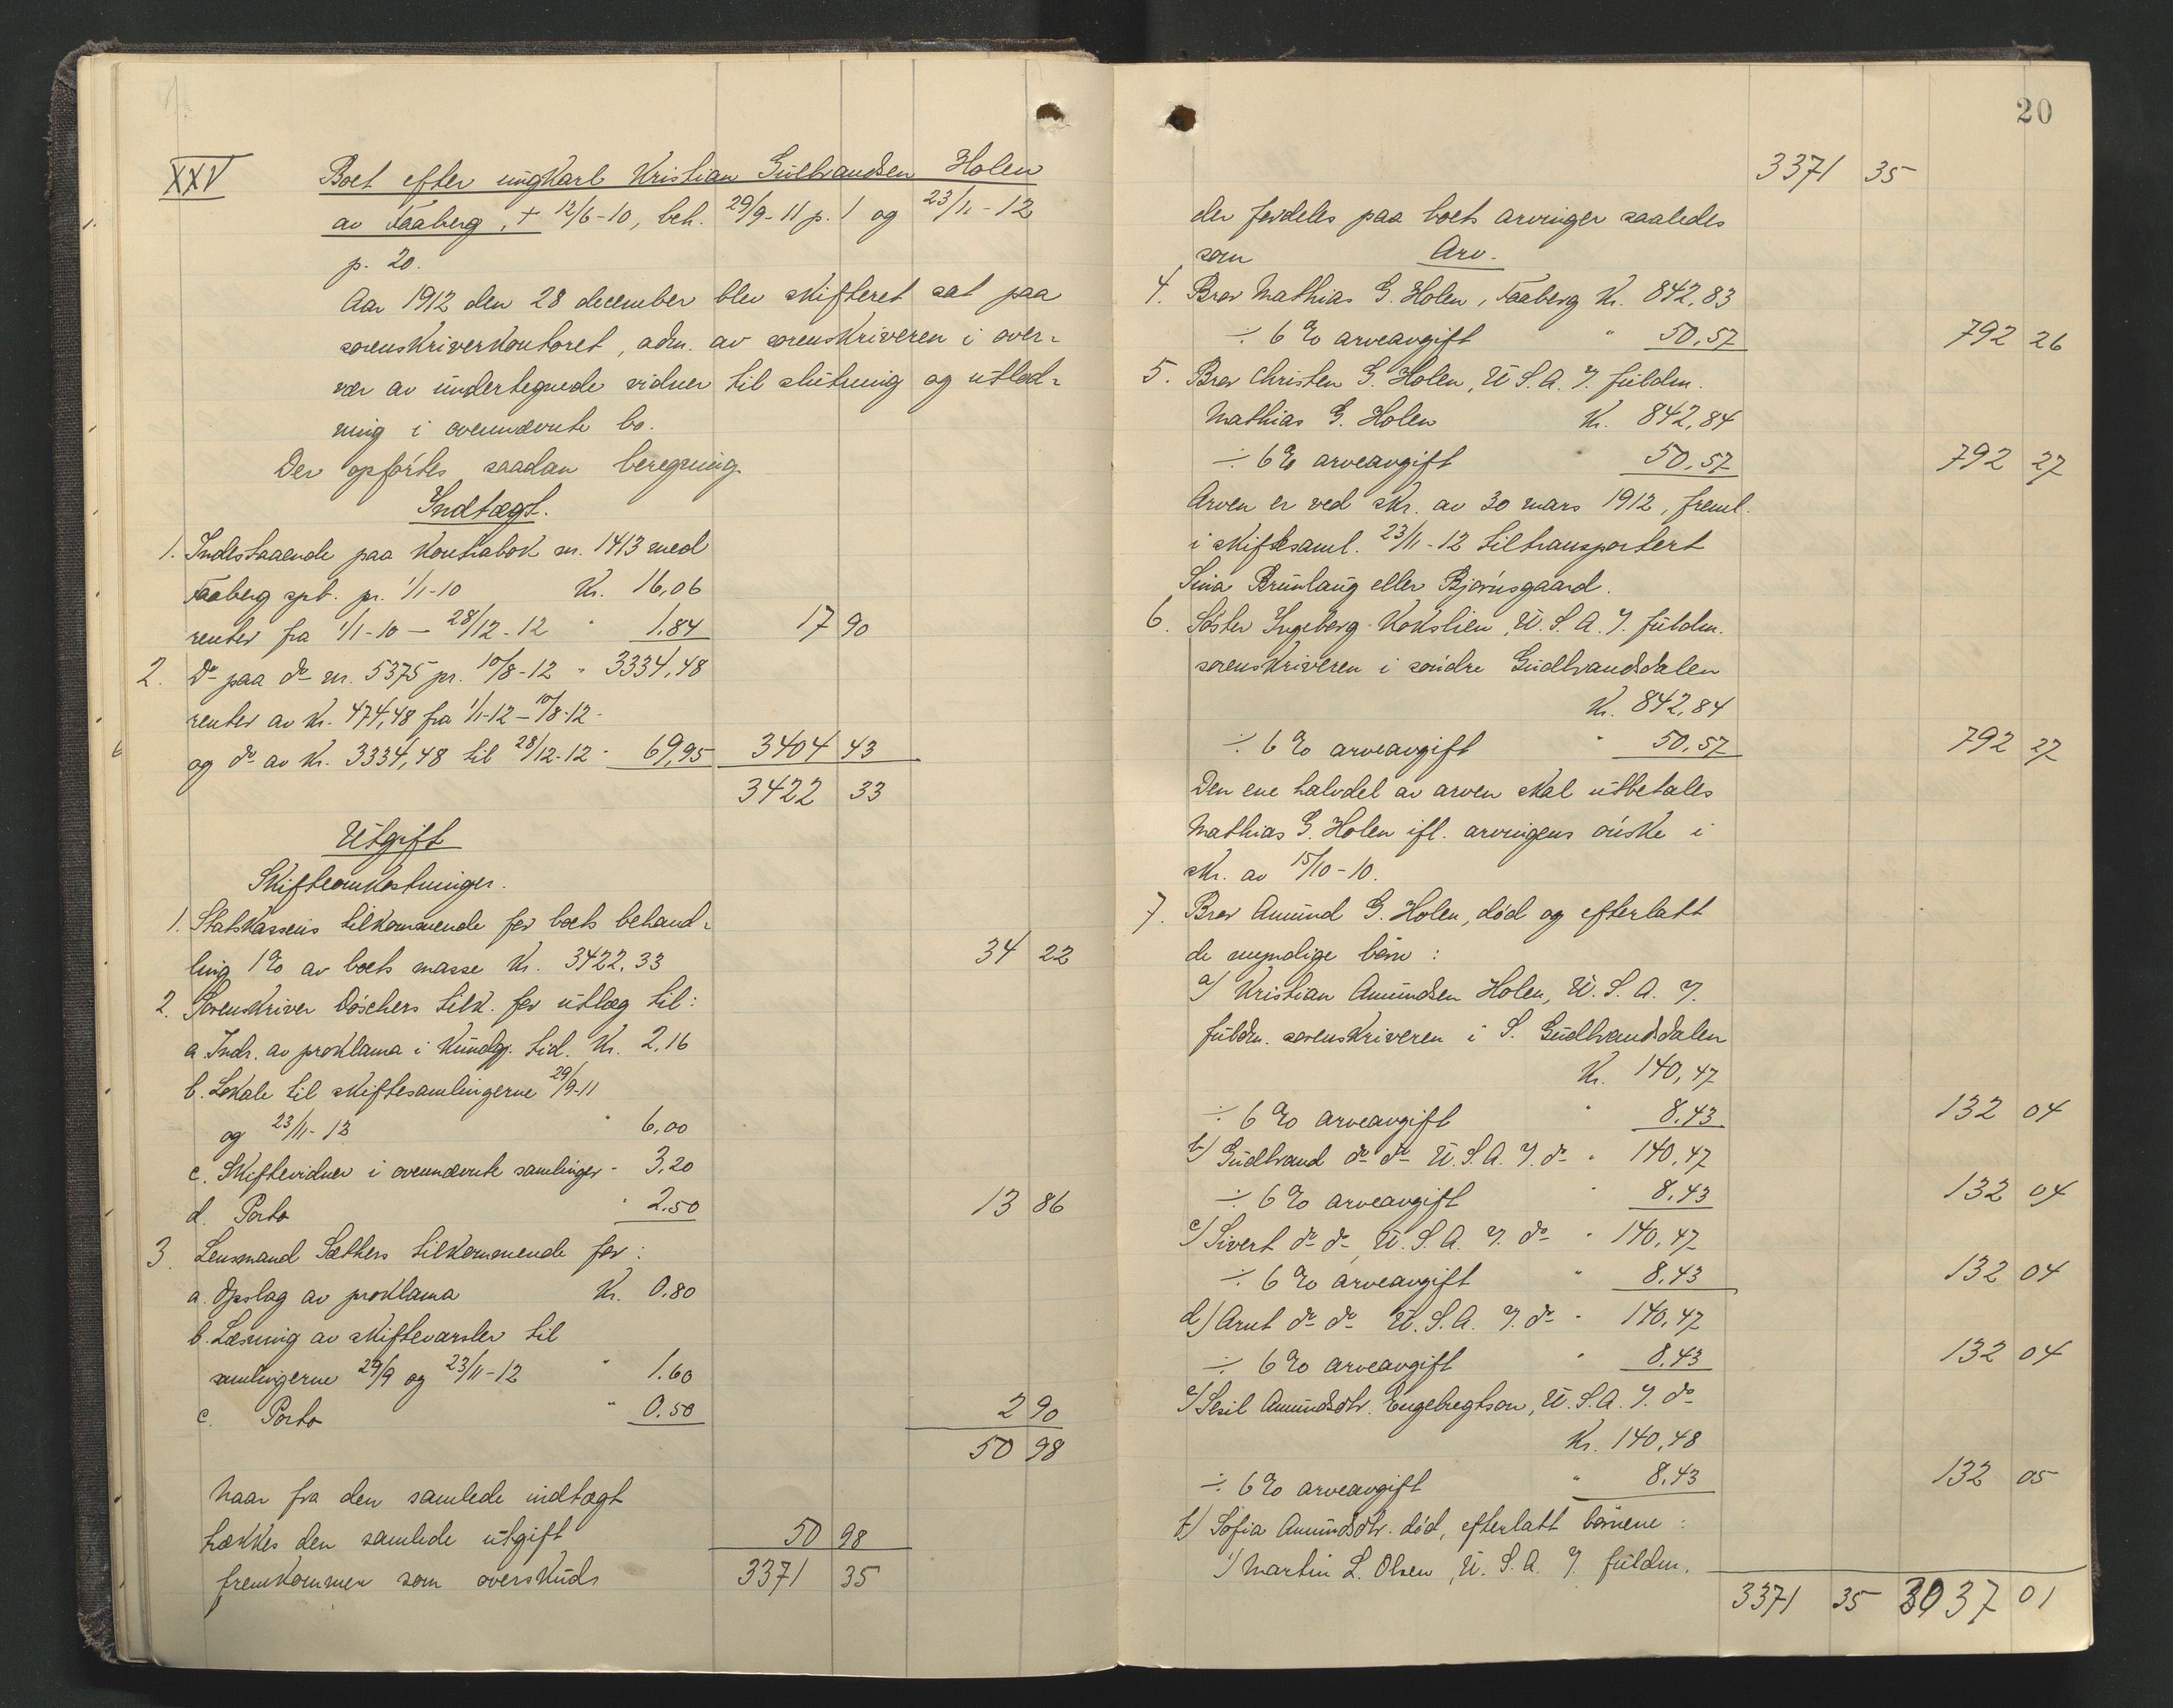 XXV Boet efter ungkarl Kristian Gulbrandsen Holen
av Faaberg, + 12/6-10, beh. 29/9-11 p. 1 og 23/11-12
p. 20.
Aar 1912 den 28 december blev skifteret sat paa
sorenskriverkontoret, adm. av sorenskriveren i over-
vær av undertegnede vidner til slutning og utlod-
ning i ovennævnte bo.
Der opførtes saadan beregning.
Indtægt.
1. Indestaaende paa Kontrabok nr. 1413 med
Faaberg spb. pr. 1/1-10 Kr. 16,06
renter fra 1/1-10 — 28/12-12 " 1,84 17 90
2. Do paa do nr. 5375 pr. 10/8-12 " 3334,48
renter av Kr. 474,48 fra 1/1-12 — 10/8-12 -
og do av Kr. 3334,48 til 28/12-12 - 69,95 3404 43
3422 33
Utgift
Skifteomkostninger.
1. Statskassens tilkommende for boets behand-
ling 1% av boets masse Kr. 3422,33 34 22
2. Sorenskriver Döschers tilk. for utlæg til:
a. Indr. av proklama i Kundgj. tid. Kr. 2,16
b. Lokale til skiftesamlingerne 29/9-11
og 23/11-12 " 6,00
c. Skiftevidner i ovennævnte samlinger - 3,20
d. Porto " 2.50 13 86
3. Lensmand Sæthers tilkommende for:
a. Opslag av proklama Kr. 0.80
b. Læsning av skiftevarsler til
samlingerne 29/9 og 23/11-12 " 1.60
c. Porto " 0.50 2 90
50 98
Naar fra den samlede indtægt
trækkes den samlede utgift 50 98
fremkommer som overskud 3371 35
20
3371 35
der fordeles paa boets arvinger saaledes
som Arv.
4. Bror Mathias G. Holen, Faaberg Kr. 842,83
÷ 6% arveavgift " 50,57 792 26
5. Bror Christen G. Holen, U. S. A. I. fuldm.
Mathias G. Holen Kr. 842,84
÷ 6% arveavgift " 50,57 792 27
Arven er ved skr. av 30 mars 1912, freml.
i skiftesaml. 23/11-12 tiltransportert
Sina Brunlaug eller Bjørnsgaard.
6. Søster Ingeborg Kokslien, U. S. A. I. fuldm.
sorenskriveren i søndre Gudbrandsdalen
Kr. 842,84
÷ 6% arveavgift " 50,57 792 27
Den ene halvdel av arven skal utbetales
Mathias G. Holen ifl. arvingens ønske i
skr. av 15/10-10.
7. Bror Amund G. Holen, död og efterlatt
de myndige børn:
a) Kristian Amundsen Holen, U. S. A. I.
fuldm. sorenskriveren i S. Gudbrandsdalen
Kr. 140,47
÷ 6% arveavgift " 8.43 132 04
b) Gudbrand do do U. S. A. I. do " 140,47
÷ 6% arveavgift " 8,43 132 04
c) Sivert do do, U. S. A. I. do " 140,47
÷ 6% arveavgift " 8,43 132 04
d) Arnt do do U. S. A. I. do - 140,47
÷ 6% arveavgift " 8.43 132 04
e) Sesil Amundsdtr. Engebregtson, U. S. A. I. do
Kr. 140,48
÷ 6% arveavgift " 8,43 132 05
f) Sofia Amundsdtr. död, efterlatt börnene:
1) Martin L. Olsen, U. S. A. I. fuldm.
3371 35 3037 01